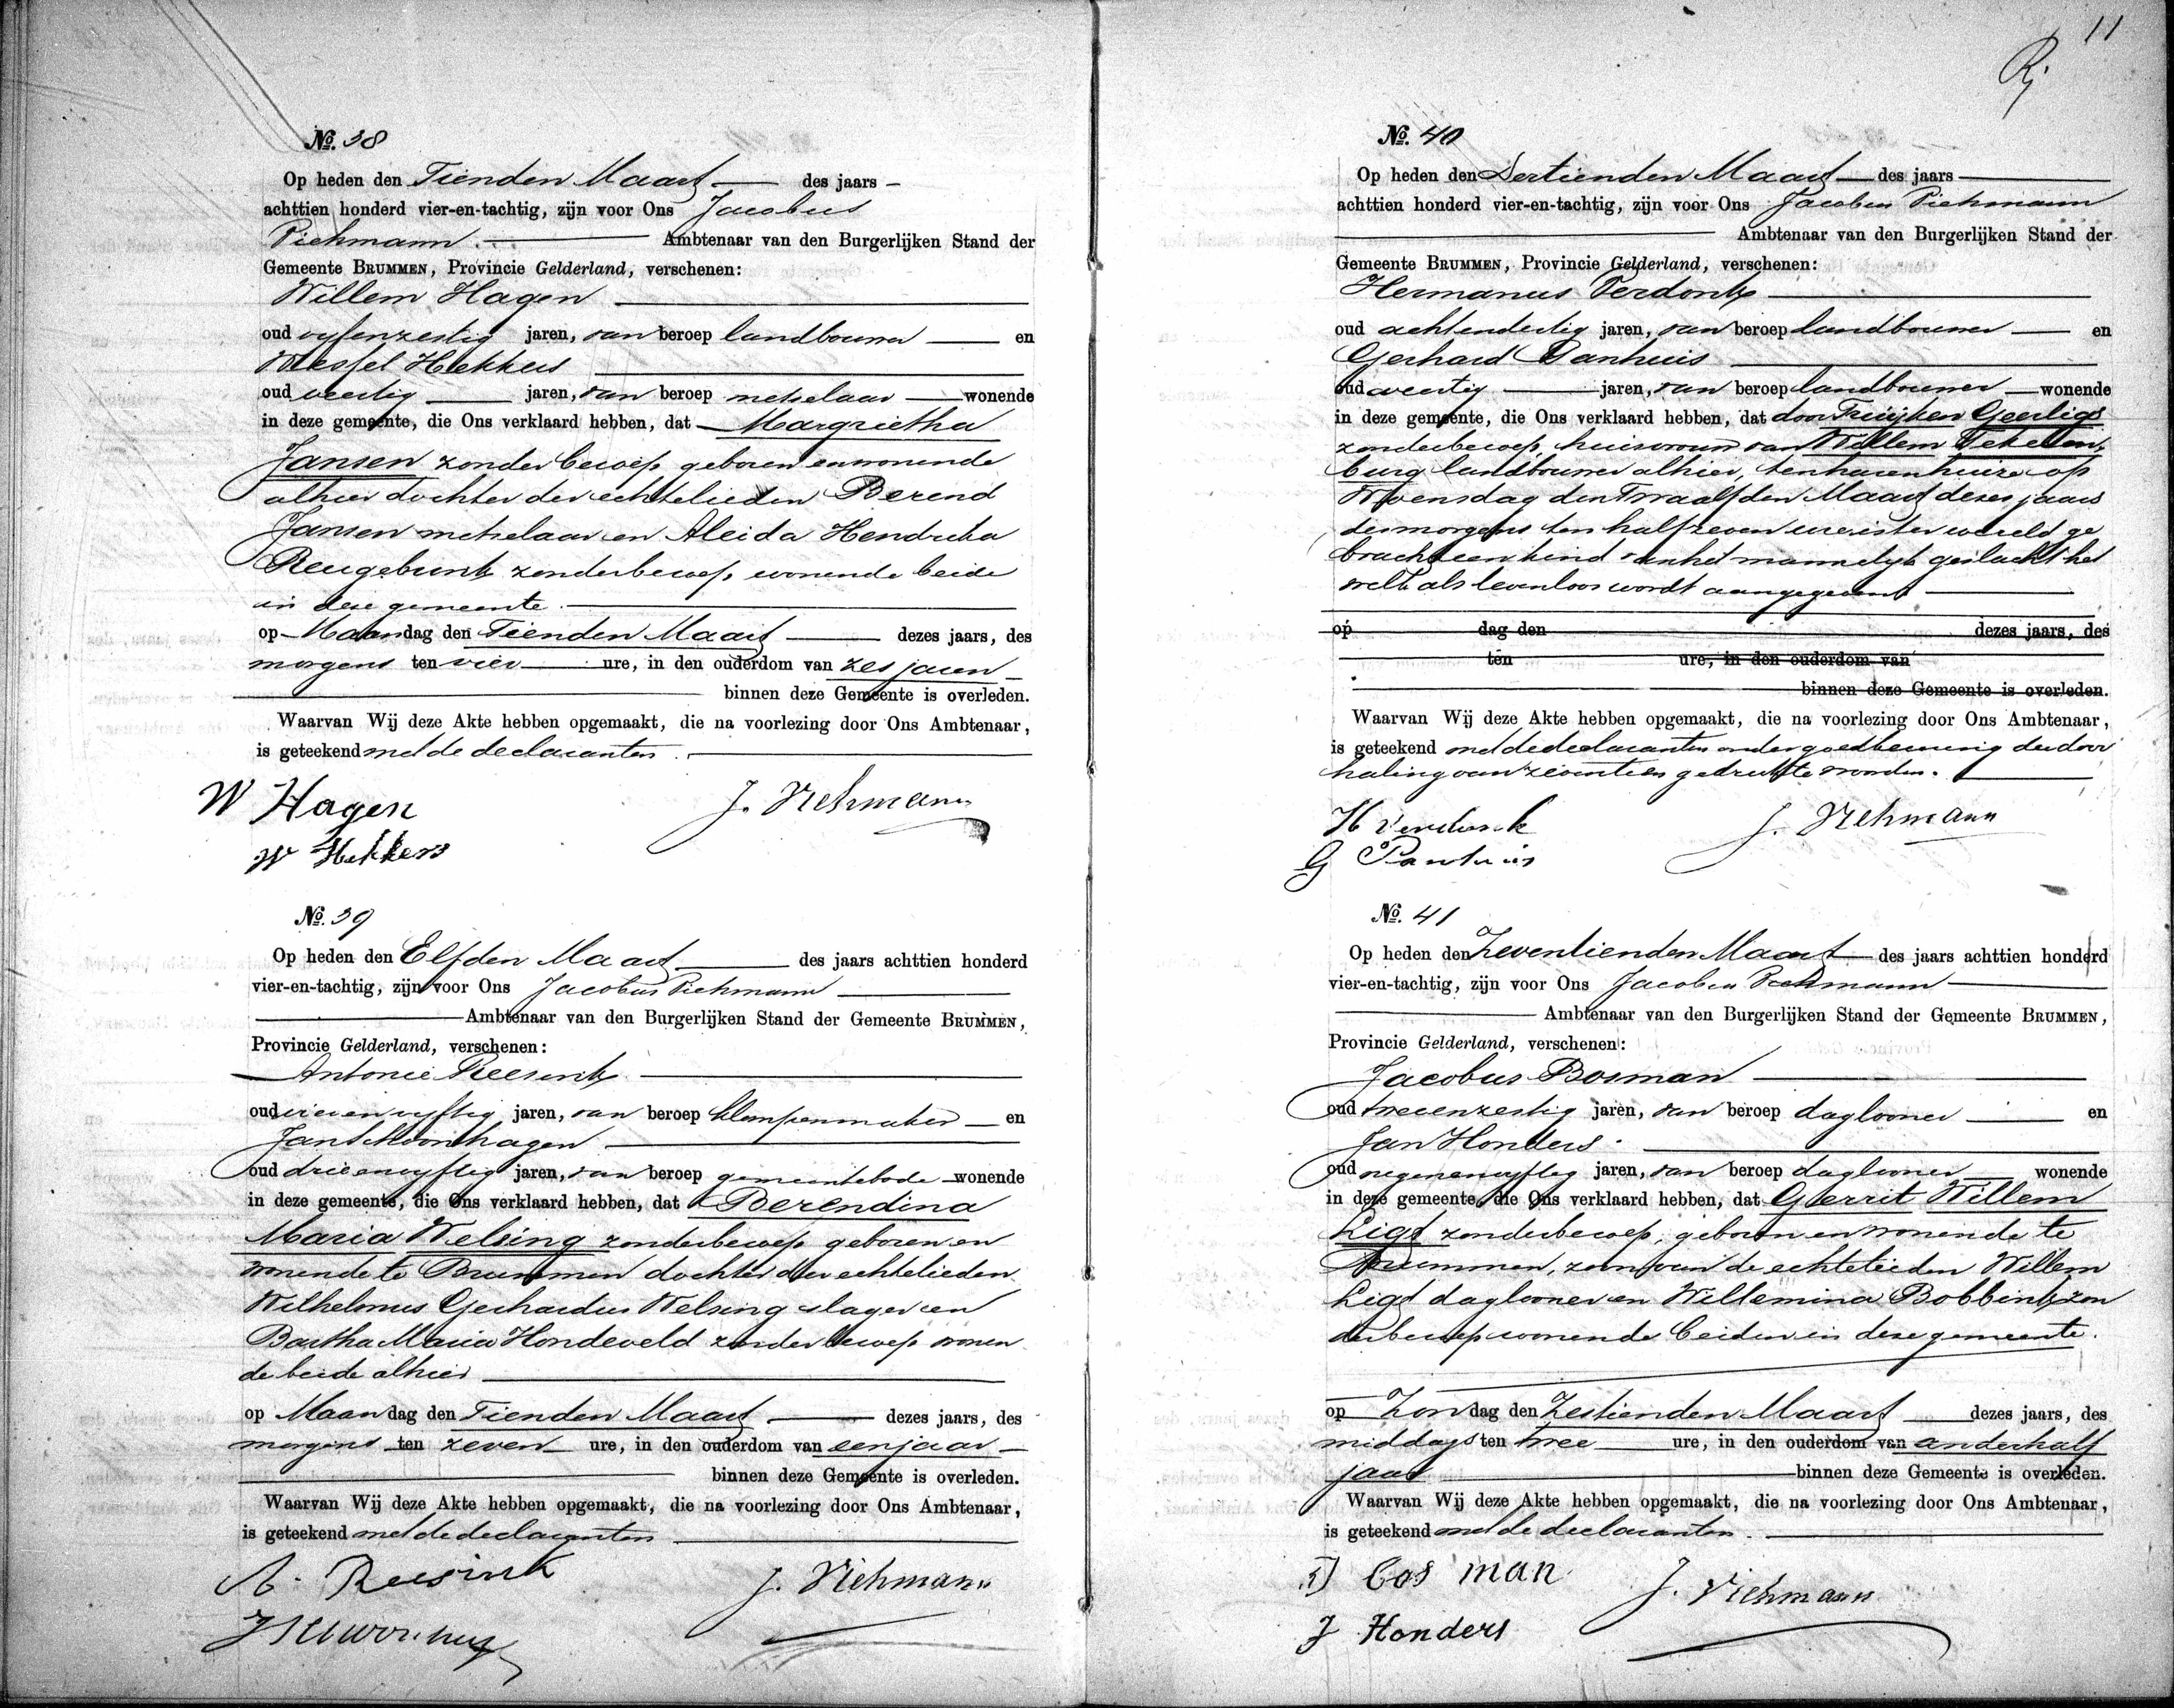 11
Rj
No. 38
Op heden den Tienden Maart des jaars
achttien honderd vier-en-tachtig, zijn voor Ons Jacobus
Viehmann. Ambtenaar van den Burgerlijken Stand der
Gemeente BRUMMEN, Provincie Gelderland, verschenen:
Willem Hagen
oud vijfenzestig jaren, van beroep landbouwer en
Wessel Hekkers
oud veertig jaren, van beroep metselaar wonende
in deze gemeente, die Ons verklaard hebben, dat Margrietha
Jansen zonder beroep geboren en wonende
alhier dochter der echtelieden Berend
Jansen metselaar en Aleida Hendrika
Reugebrink zonder beroep, wonende beide
in deze gemeente.
op Maandag den Tienden Maart dezes jaars, des
morgens ten vier ure, in den ouderdom van zes jaren
binnen deze Gemeente is overleden.
Waarvan Wij deze Akte hebben opgemaakt, die na voorlezing door Ons Ambtenaar,
is geteekend met de declaranten.
W Hagen J. Viehmann
W Hekkers
No. 39
Op heden den Elfden Maart des jaars achttien honderd
vier-en-tachtig, zijn voor Ons Jacobus Viehmann
Ambtenaar van den Burgerlijken Stand der Gemeente BRUMMEN,
Provincie Gelderland, verschenen:
Antonie Reesink
oud vierenvijftig jaren, van beroep klompenmaker en
Jan Schoonhagen
oud drieenvijftig jaren, van beroep gemeentebode wonende
in deze gemeente, die Ons verklaard hebben, dat Berendina
Maria Welsing zonder beroep geboren en
wonende te Brummen dochter der echtelieden
Wilhelmus Gerhardus Welsing slager en
Bartha Maria Hondeveld zonder beroep wonen
de beide alhier
op Maandag den Tienden Maart dezes jaars, des
morgens ten zeven ure, in den ouderdom van een jaar
binnen deze Gemeente is overleden.
Waarvan Wij deze Akte hebben opgemaakt, die na voorlezing door Ons Ambtenaar,
is geteekend met de declaranten
A. Reesink J. Viehmann
No. 40
Op heden den Dertienden Maart des jaars
achttien honderd vier-en-tachtig, zijn voor Ons Jacobus Viehmann
Ambtenaar van den Burgerlijken Stand der
Gemeente BRUMMEN, Provincie Gelderland, verschenen:
Hermanus Verdonk
oud achtendertig jaren, van beroep landbouwer en
Gerhard Panhuis
oud veertig jaren, van beroep landbouwer wonende
in deze gemeente, die Ons verklaard hebben, dat door Fruijken Geerligs
zonder beroep, huisvrouw van Willem Tekellen
burg landbouwer alhier, ten haren huize op
Woensdag den Twaalfden Maart dezes jaars
des morgens ten half zeven ure is ter wereld ge
bracht een kind van het mannelijk geslacht het
welk als levenloos wordt aangegeven
op dag den dezes jaars, des
ten ure, in den ouderdom van
binnen deze Gemeente is overleden.
Waarvan Wij deze Akte hebben opgemaakt, die na voorlezing door Ons Ambtenaar,
is geteekend met de declaranten onder goedkeuring der door
haling van zeventien gedrukte woorden.
H Verdonk J. Viehmann
G Panhuis
No. 41
Op heden den Zeventienden Maart des jaars achttien honderd
vier-en-tachtig, zijn voor Ons Jacobus Viehmann
Ambtenaar van den Burgerlijken Stand der Gemeente BRUMMEN,
Provincie Gelderland, verschenen:
Jacobus Bosman
oud tweeenzestig jaren, van beroep daglooner en
Jan Honders
oud negenenvijftig jaren, van beroep daglooner wonende
in deze gemeente, die Ons verklaard hebben, dat Gerrit Willem
Ligt zonder beroep, geboren en wonende te
Brummen, zoon van de echtelieden Willem
Ligt daglooner en Willemina Bobbink zon
der beroep wonende beiden in deze gemeente.
op Zondag den Zestienden Maart dezes jaars, des
middags ten twee ure, in den ouderdom van anderhalf
jaar binnen deze Gemeente is overleden.
Waarvan Wij deze Akte hebben opgemaakt, die na voorlezing door Ons Ambtenaar,
is geteekend met de declaranten.
J Bosman J. Viehmann
J Honders